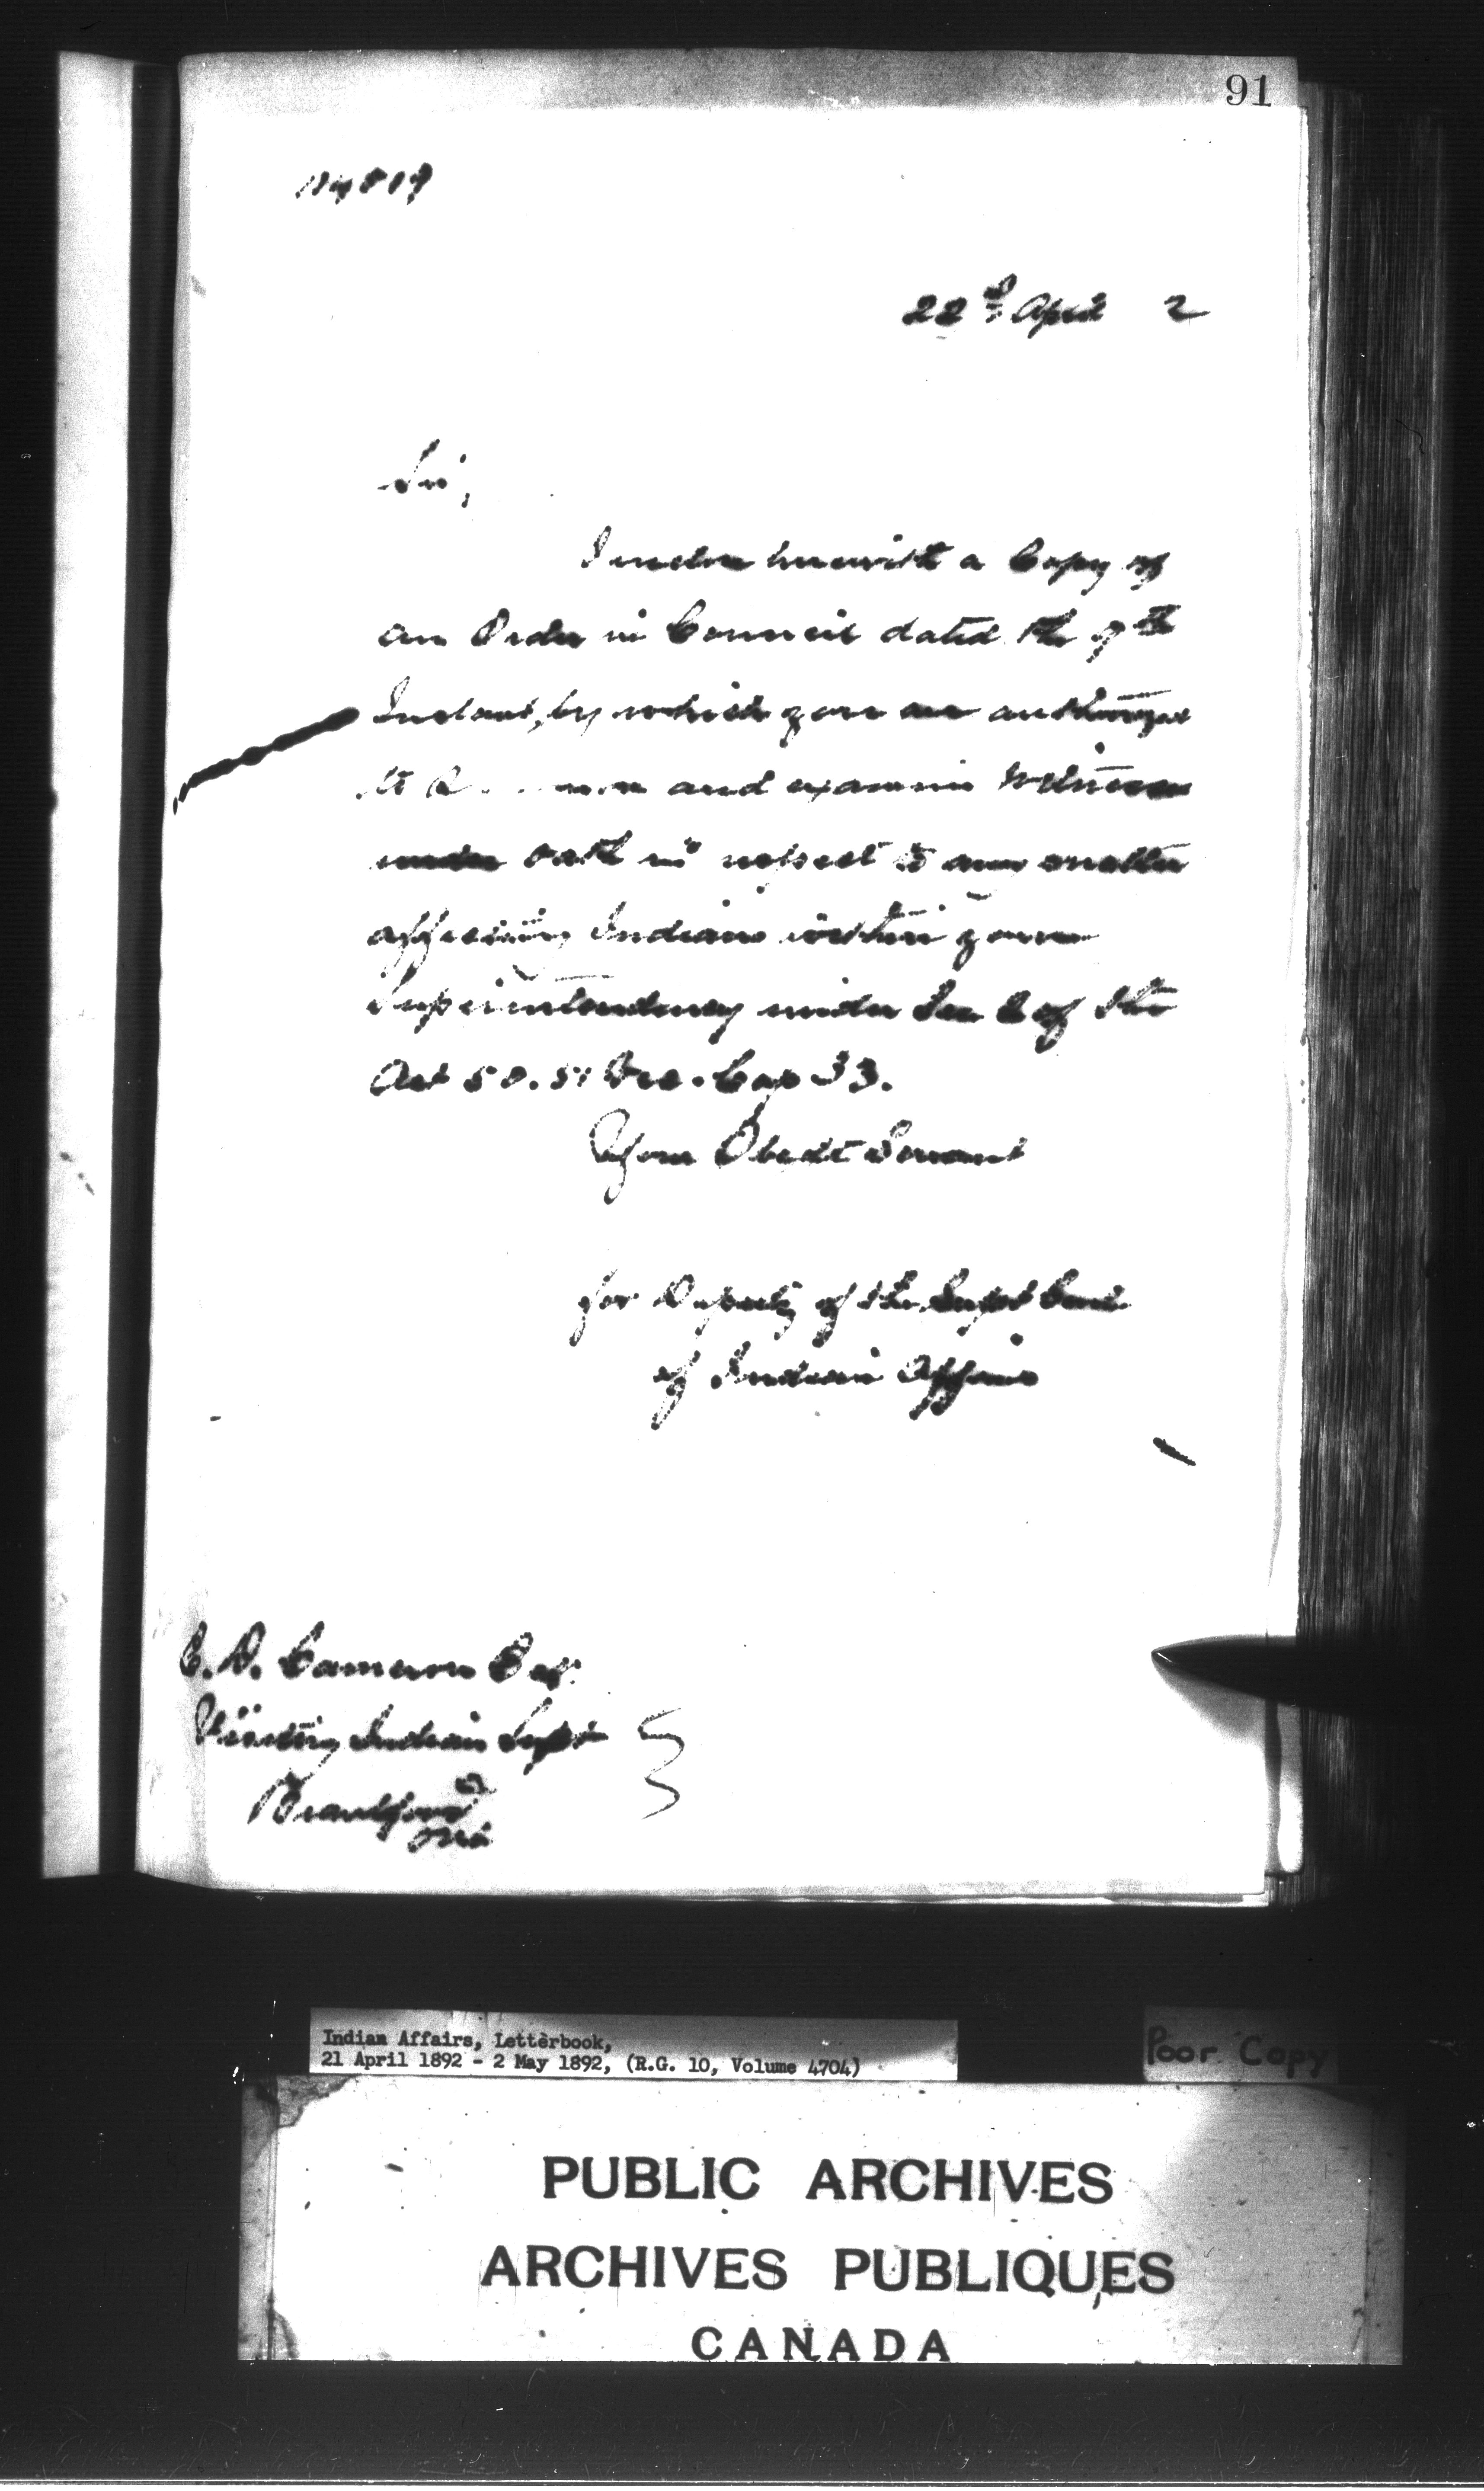 91
22d April 2
Sir,
I enclose herewith a Copy of
an Order in Council dated the 9th
Instant, by which you are authorized
to and examine Witnesses
under oath in respect to any matter
affecting Indians within your
Superintendency under Sec 8 of the
Act 50.51 Vic. Cap 33.
Your Obedt Servant
for Deputy of the Supt Genl
of Indian Affairs
E. D. Cameron Esq.
Visiting Indian Supt
Brantford
Ont
Indian Affairs, Letterbook,
21 April 1892 - 2 May 1892, (R.G. 10, Volume 4704)
Poor Copy
PUBLIC ARCHIVES
ARCHIVES PUBLIQUES
CANADA